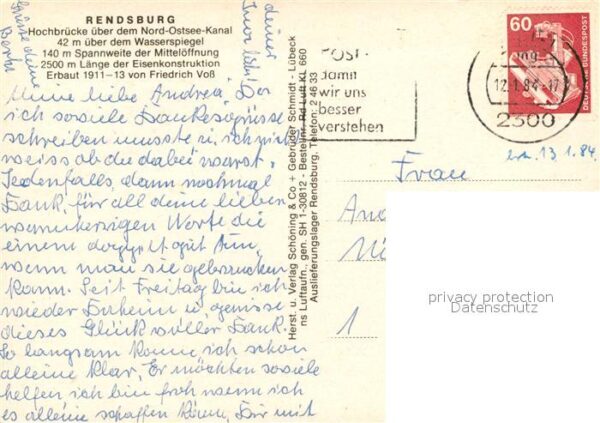 RENDSBURG
Hochbrücke über dem Nord-Ostsee-Kanal
42 m über dem Wasserspiegel
140 m Spannweite der Mittelöffnung
2500 m Länge der Eisenkonstruktion
Erbaut 1911–13 von Friedrich Voß
Meine liebe Andrea, Da
ich soviele Dankesgrüsse
schreiben musste u. ich nicht
weiss ob du dabei warst.
Jedenfalls, dann nochmal
Dank, für all deine lieben
warmherzigen Worte die
einem doppelt gut tun,
wenn man sie gebrauchen
kann. Seit Freitag bin ich
wieder Daheim u. geniesse
dieses Glück voller Dank.
So langsam komm ich schon
alleine klar. Er möchten soviele
helfen ich bin froh wenn ich
es alleine schaffen kann. Dir mit
Grüsse deine
deiner
Herst. u. Verlag Schöning & Co + Gebrüder Schmidt - Lübeck
ns Luftaufn., gen. SH 1-30812 - Bestellnr. Rd Luft KL 660
Auslieferungslager Rendsburg, Telefon: 2 46 33
POST -
damit
wir uns
besser
verstehen
60
DEUTSCHE BUNDESPOST
12.1.84.-17
2300
13.1.84.
Frau
1
privacy protection
Datenschutz